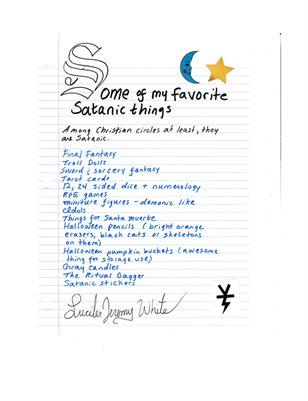 Some of my favorite
Satanic things
Among Christian circles at least, they
are Satanic.
Final Fantasy
Troll Dolls
Sword & sorcery fantasy
Tarot cards
12, 24 sided dice + numerology
RPG games
miniture figures - demonic like
Cldols
Things for Santa muerte
Halloween pencils (bright orange
erasers, black cats or skeletons
on them)
Halloween pumpkin buckets (awesome
thing for storage use)
Gray candles
The Ritual Dagger
Satanic stickers
Lucifer Jeremy White